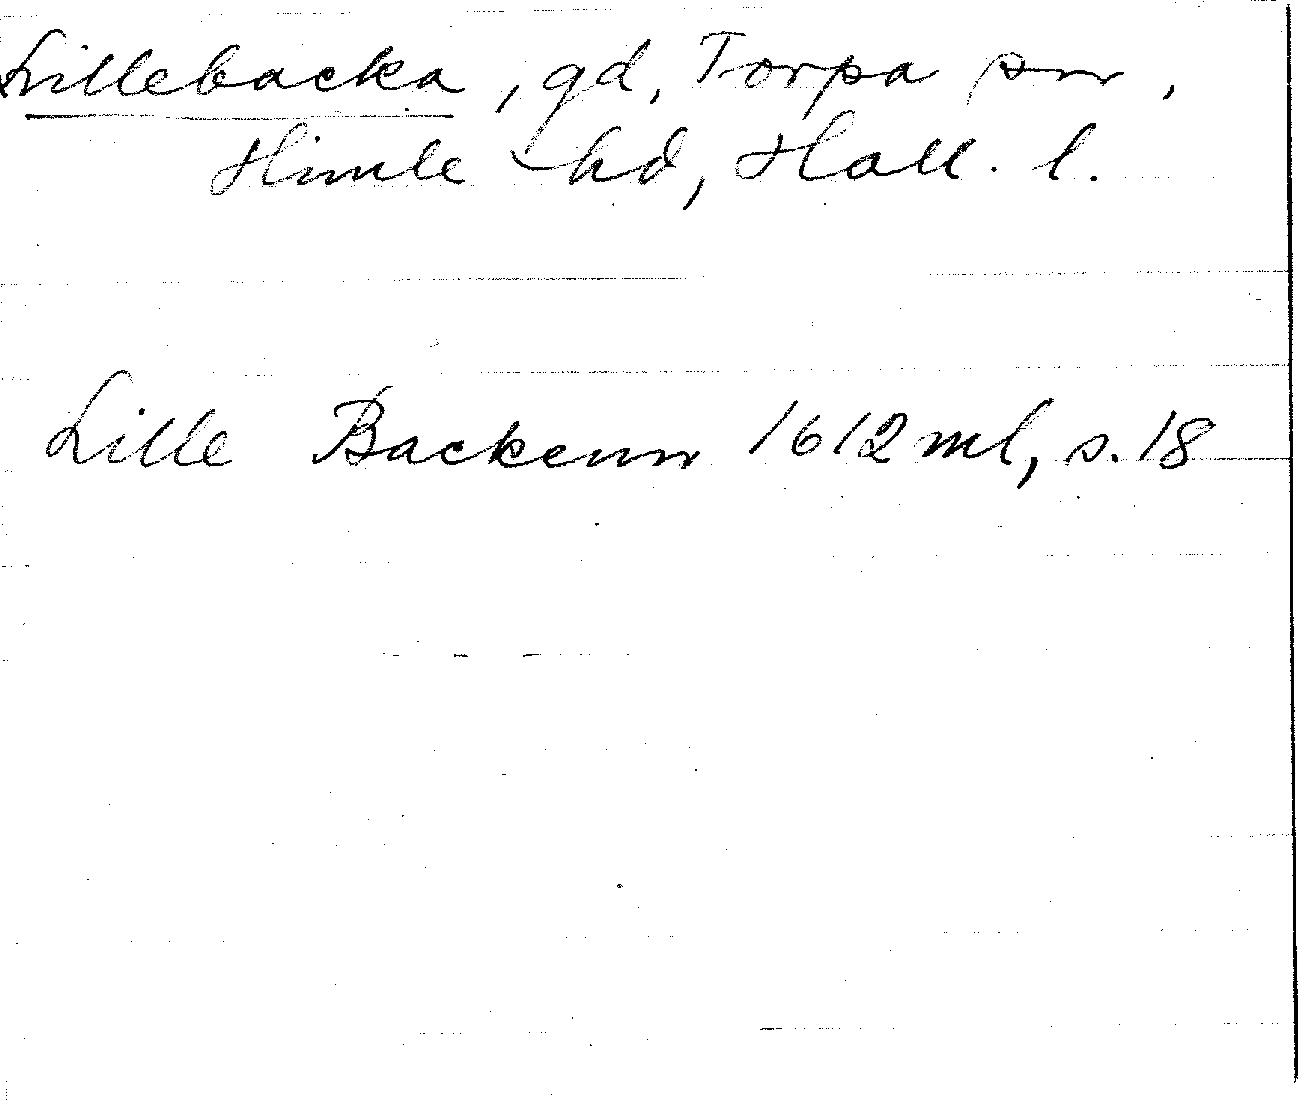 Lillebacka, gd, Torpa sn,
Himle hd, Hall. l.
Lille Backenn 1612 ml, s. 18